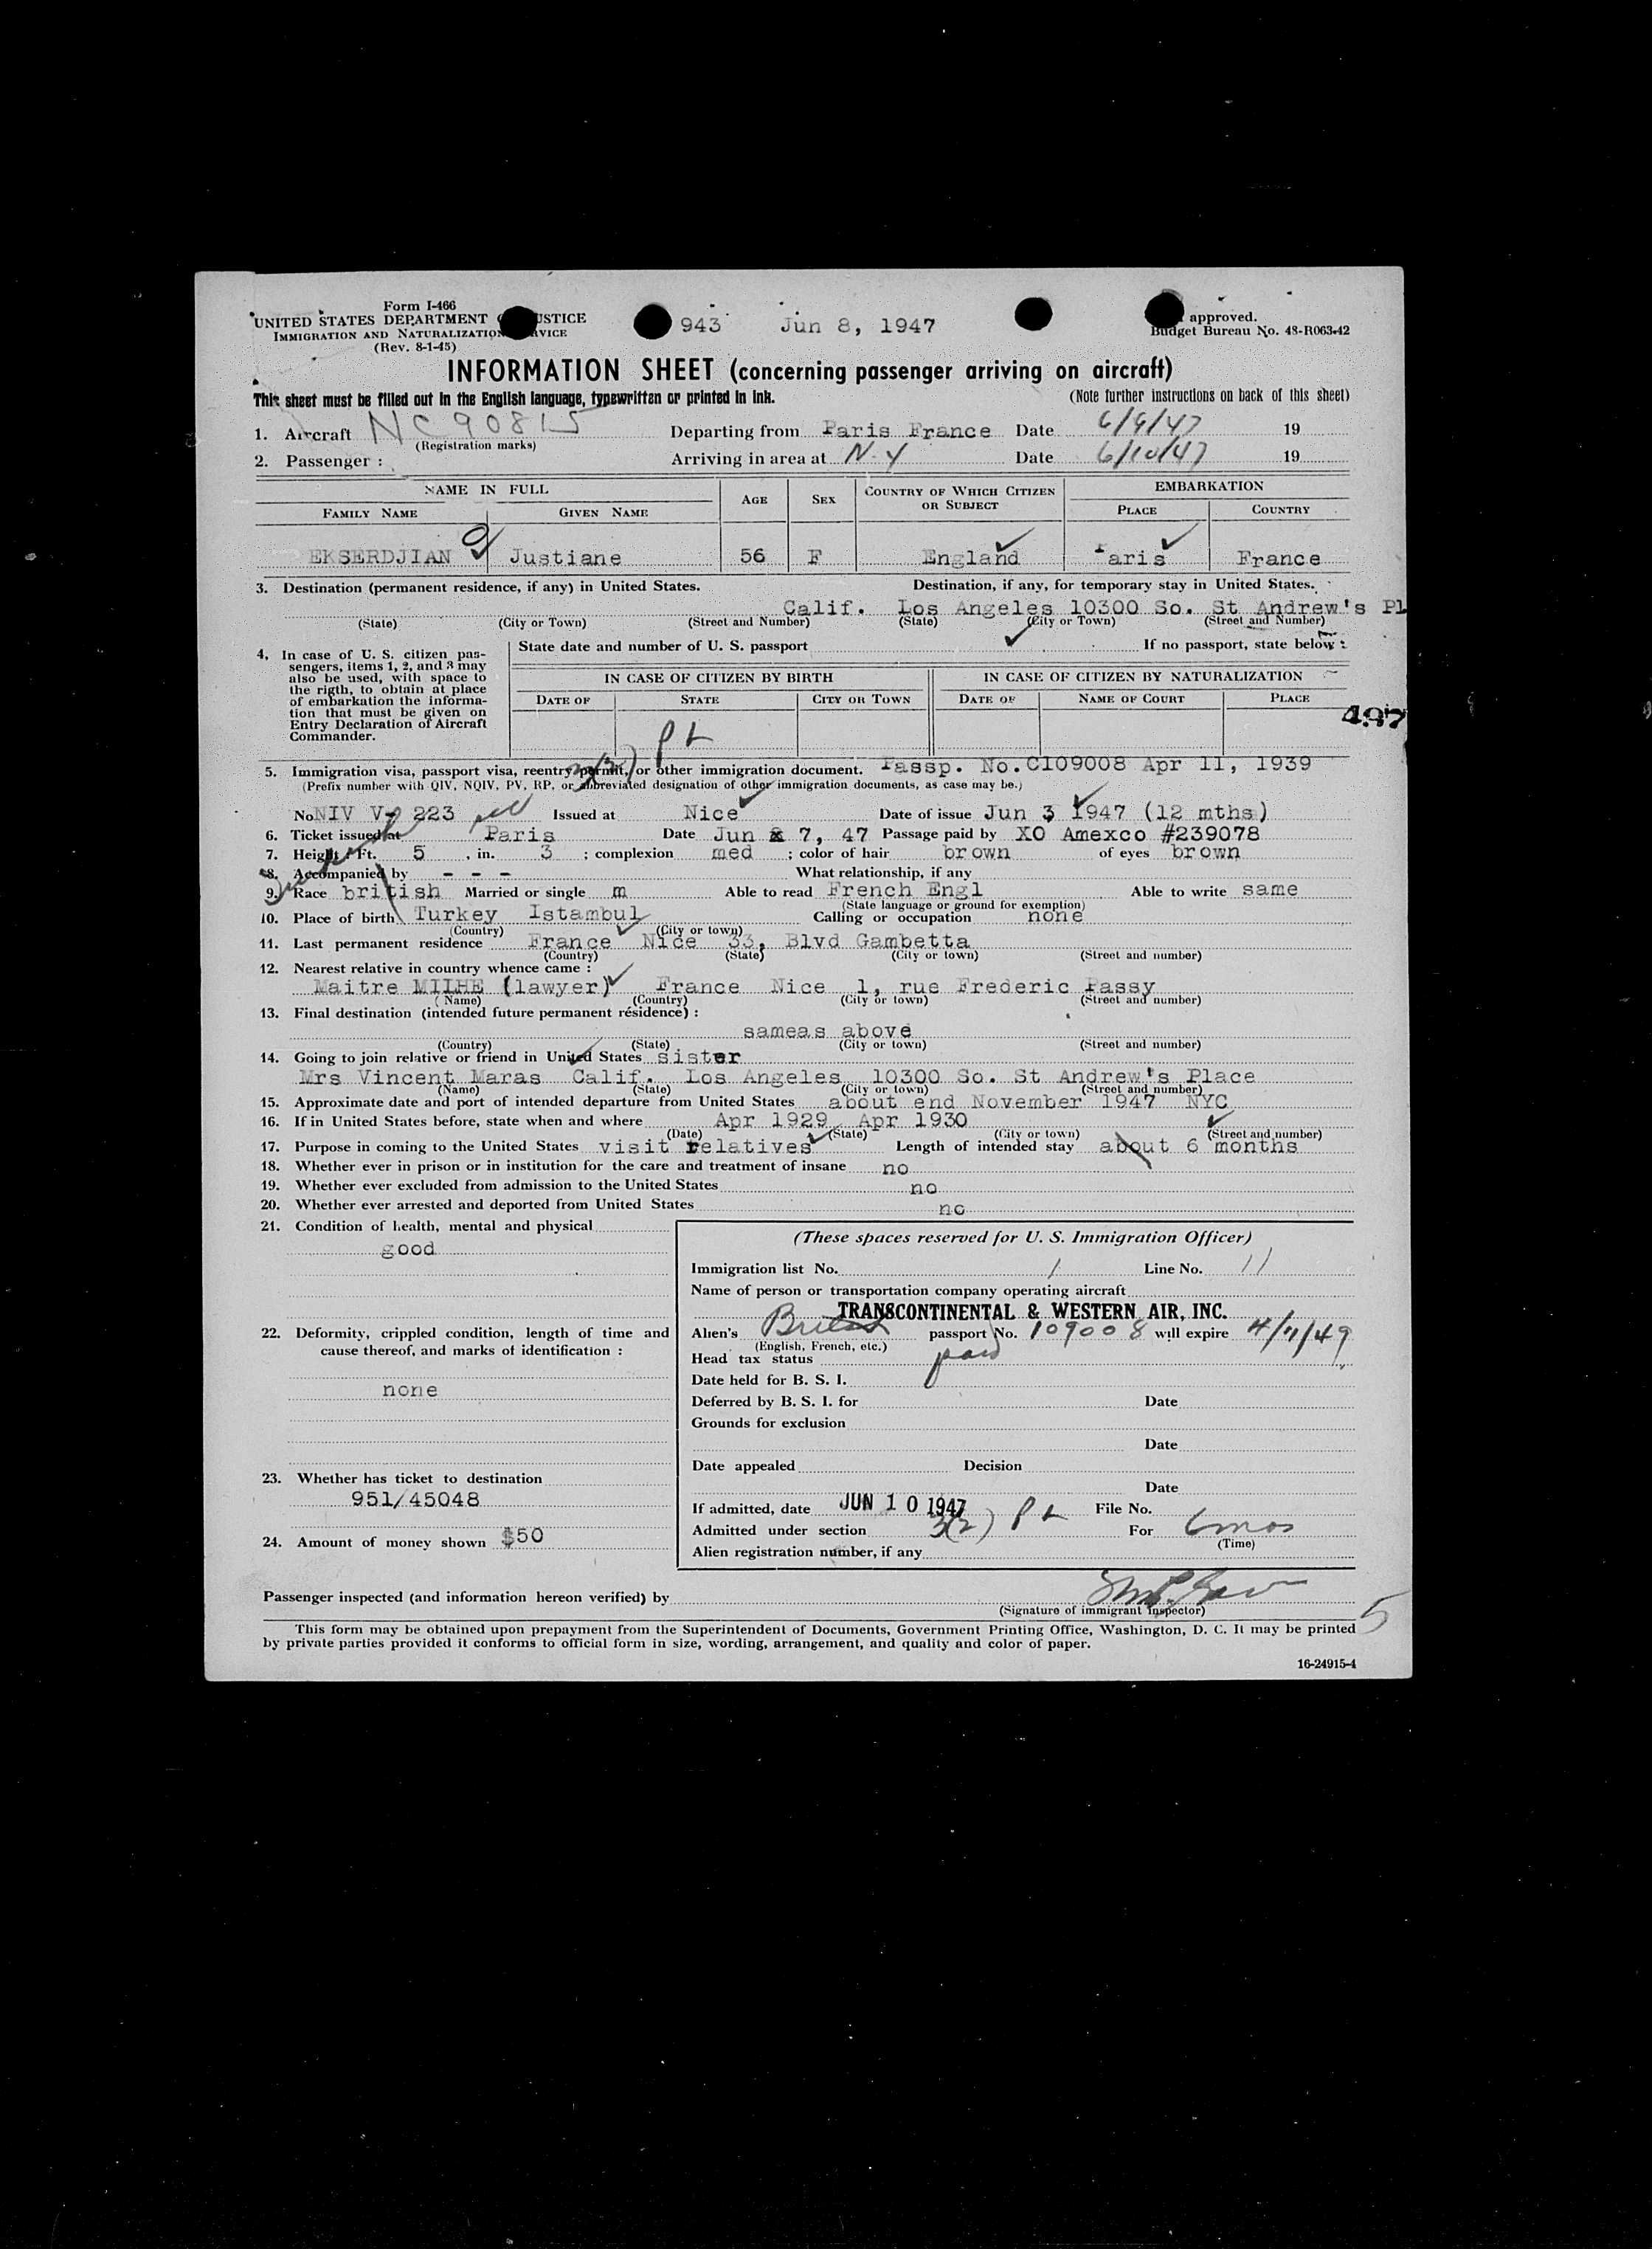 Form I-466
UNITED STATES DEPARTMENT USTICE
IMMIGRATION AND NATURALIZATION RVICE
(Rev. 8-1-45)
943 Jun 8, 1947
approved.
Budget Bureau No. 43-R063-42
INFORMATION SHEET (concerning passenger arriving on aircraft)
This sheet must be filled out in the English language, typewritten or printed in ink. (Note further instructions on back of this sheet)
1. Aircraft NC90815 Departing from Paris France Date 6/9/47 19
(Registration marks)
2. Passenger : Arriving in area at N.Y Date 6/10/47 19
NAME IN FULL AGE SEX COUNTRY OF WHICH CITIZEN OR SUBJECT EMBARKATION
FAMILY NAME GIVEN NAME PLACE COUNTRY
EKSERDJIAN Justiane 56 F England Paris France
3. Destination (permanent residence, if any) in United States. Destination, if any, for temporary stay in United States.
Calif. Los Angeles 10300 So. St Andrew's Pl
(State) (City or Town) (Street and Number) (State) (City or Town) (Street and Number)
4. In case of U. S. citizen pas-
sengers, items 1, 2, and 3 may
also be used, with space to
the rigth, to obtain at place
of embarkation the informa-
tion that must be given on
Entry Declaration of Aircraft
Commander.
State date and number of U. S. passport If no passport, state below :
IN CASE OF CITIZEN BY BIRTH IN CASE OF CITIZEN BY NATURALIZATION
DATE OF STATE CITY OR TOWN DATE OF NAME OF COURT PLACE
497
PL
3(2)
5. Immigration visa, passport visa, reentry permit, or other immigration document. Passp. No.C109008 Apr 11, 1939
(Prefix number with QIV, NQIV, PV, RP, or abbreviated designation of other immigration documents, as case may be.)
No. NIV V- 223 Issued at Nice Date of issue Jun 3 1947 (12 mths)
6. Ticket issued at Paris Date Jun 7, 47 Passage paid by XO Amexco #239078
7. Height : Ft. 5 , in. 3 ; complexion med ; color of hair brown of eyes brown
8. Accompanied by - - - What relationship, if any
9. Race british Married or single m Able to read French Engl Able to write same
(State language or ground for exemption)
10. Place of birth Turkey Istambul Calling or occupation none
(Country) (City or town)
11. Last permanent residence France Nice 33, Blvd Gambetta
(Country) (State) (City or town) (Street and number)
12. Nearest relative in country whence came :
Maitre MILHE (lawyer) France Nice 1, rue Frederic Passy
(Name) (Country) (City or town) (Street and number)
13. Final destination (intended future permanent résidence) :
sameas above
(Country) (State) (City or town) (Street and number)
14. Going to join relative or friend in United States sister
Mrs Vincent Maras Calif. Los Angeles 10300 So. St Andrew's Place
(Name) (State) (City or town) (Street and number)
15. Approximate date and port of intended departure from United States about end November 1947 NYC
16. If in United States before, state when and where Apr 1929 Apr 1930
(Date) (State) (City or town) (Street and number)
17. Purpose in coming to the United States visit relatives Length of intended stay about 6 months
18. Whether ever in prison or in institution for the care and treatment of insane no
19. Whether ever excluded from admission to the United States no
20. Whether ever arrested and deported from United States no
21. Condition of health, mental and physical
good
22. Deformity, crippled condition, length of time and
cause thereof, and marks of identification :
none
23. Whether has ticket to destination
951/45048
24. Amount of money shown $50
(These spaces reserved for U. S. Immigration Officer)
Immigration list No. 1 Line No. 11
Name of person or transportation company operating aircraft
TRANSCONTINENTAL & WESTERN AIR, INC.
Alien's British passport No. 109008 will expire 4/11/49
(English, French, etc.)
Head tax status paid
Date held for B. S. I.
Deferred by B. S. I. for Date
Grounds for exclusion
Date
Date appealed Decision
Date
If admitted, date JUN 10 1947 File No.
Admitted under section 3(2) PL For 6mos
(Time)
Alien registration number, if any
Passenger inspected (and information hereon verified) by
(Signature of immigrant inspector)
5
This form may be obtained upon prepayment from the Superintendent of Documents, Government Printing Office, Washington, D. C. It may be printed
by private parties provided it conforms to official form in size, wording, arrangement, and quality and color of paper.
16-24915-4